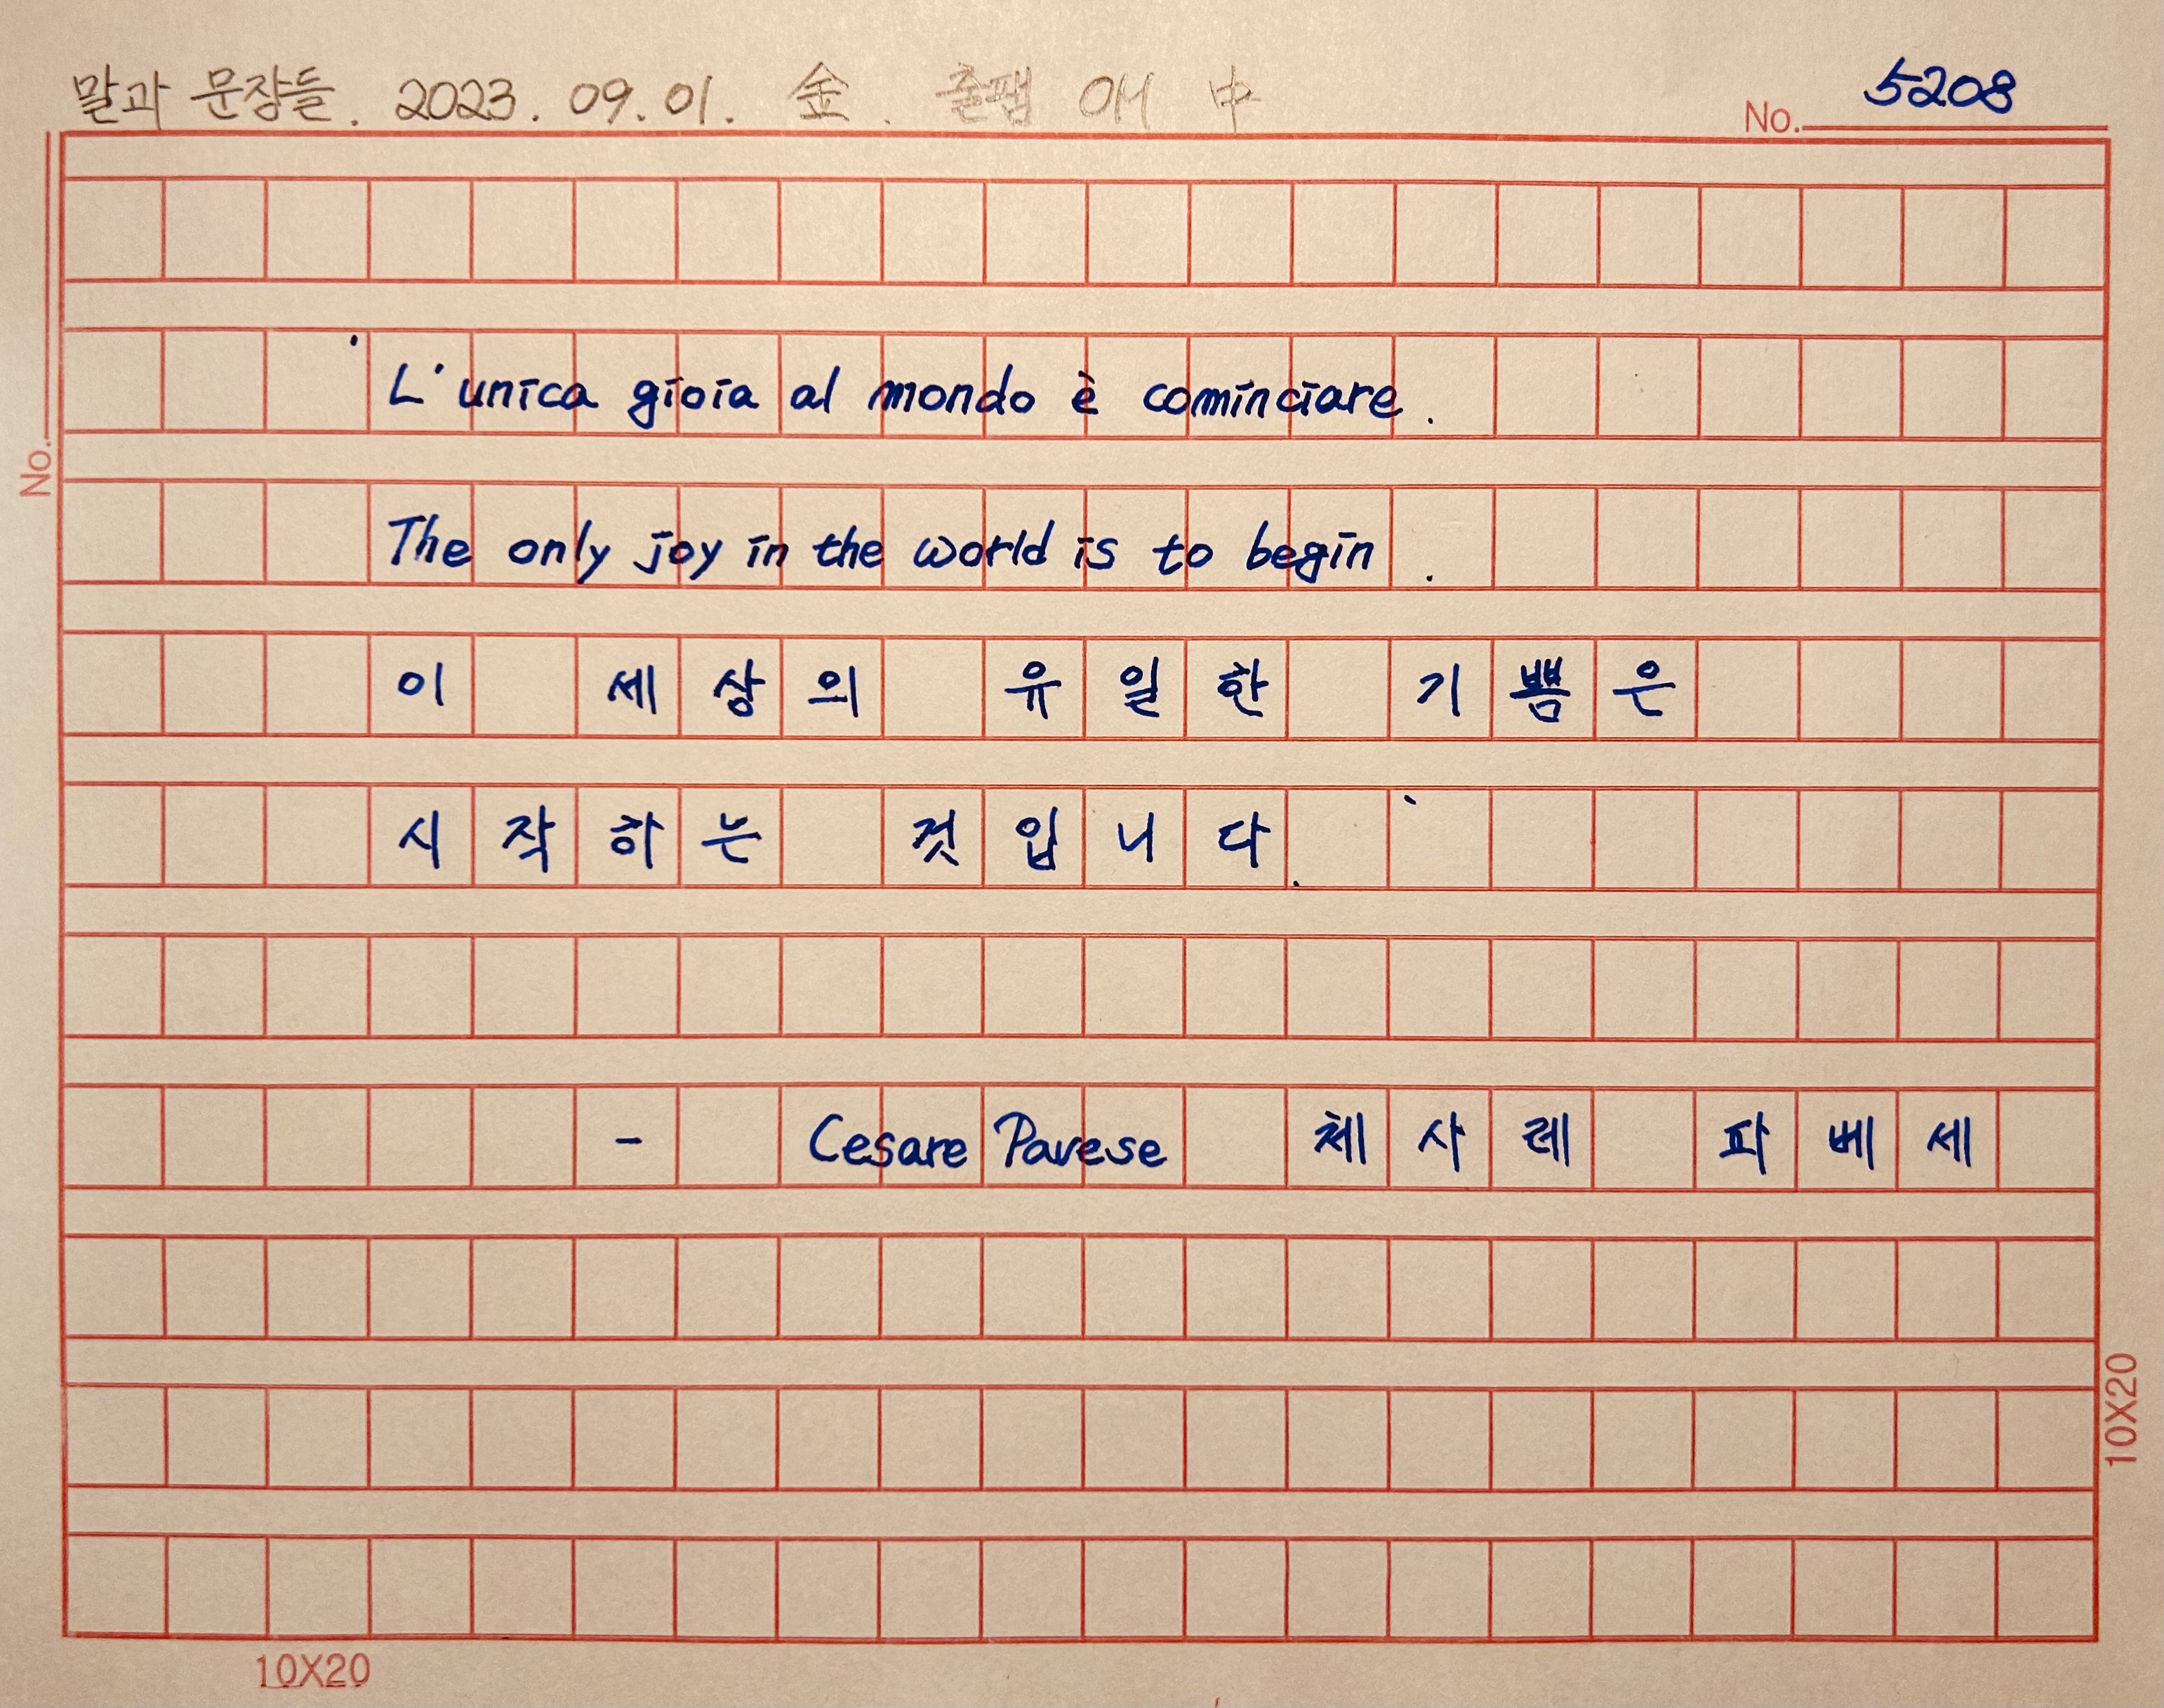 말과 문장들. 2023. 09. 01. 金. 출팸 OH 中
No. 5208
No.
L'unica gioia al mondo è cominciare.
The only joy in the world is to begin.
이 세상의 유일한 기쁨은
시작하는 것입니다.
- Cesare Pavese 체사레 파베세
10X20
10X20